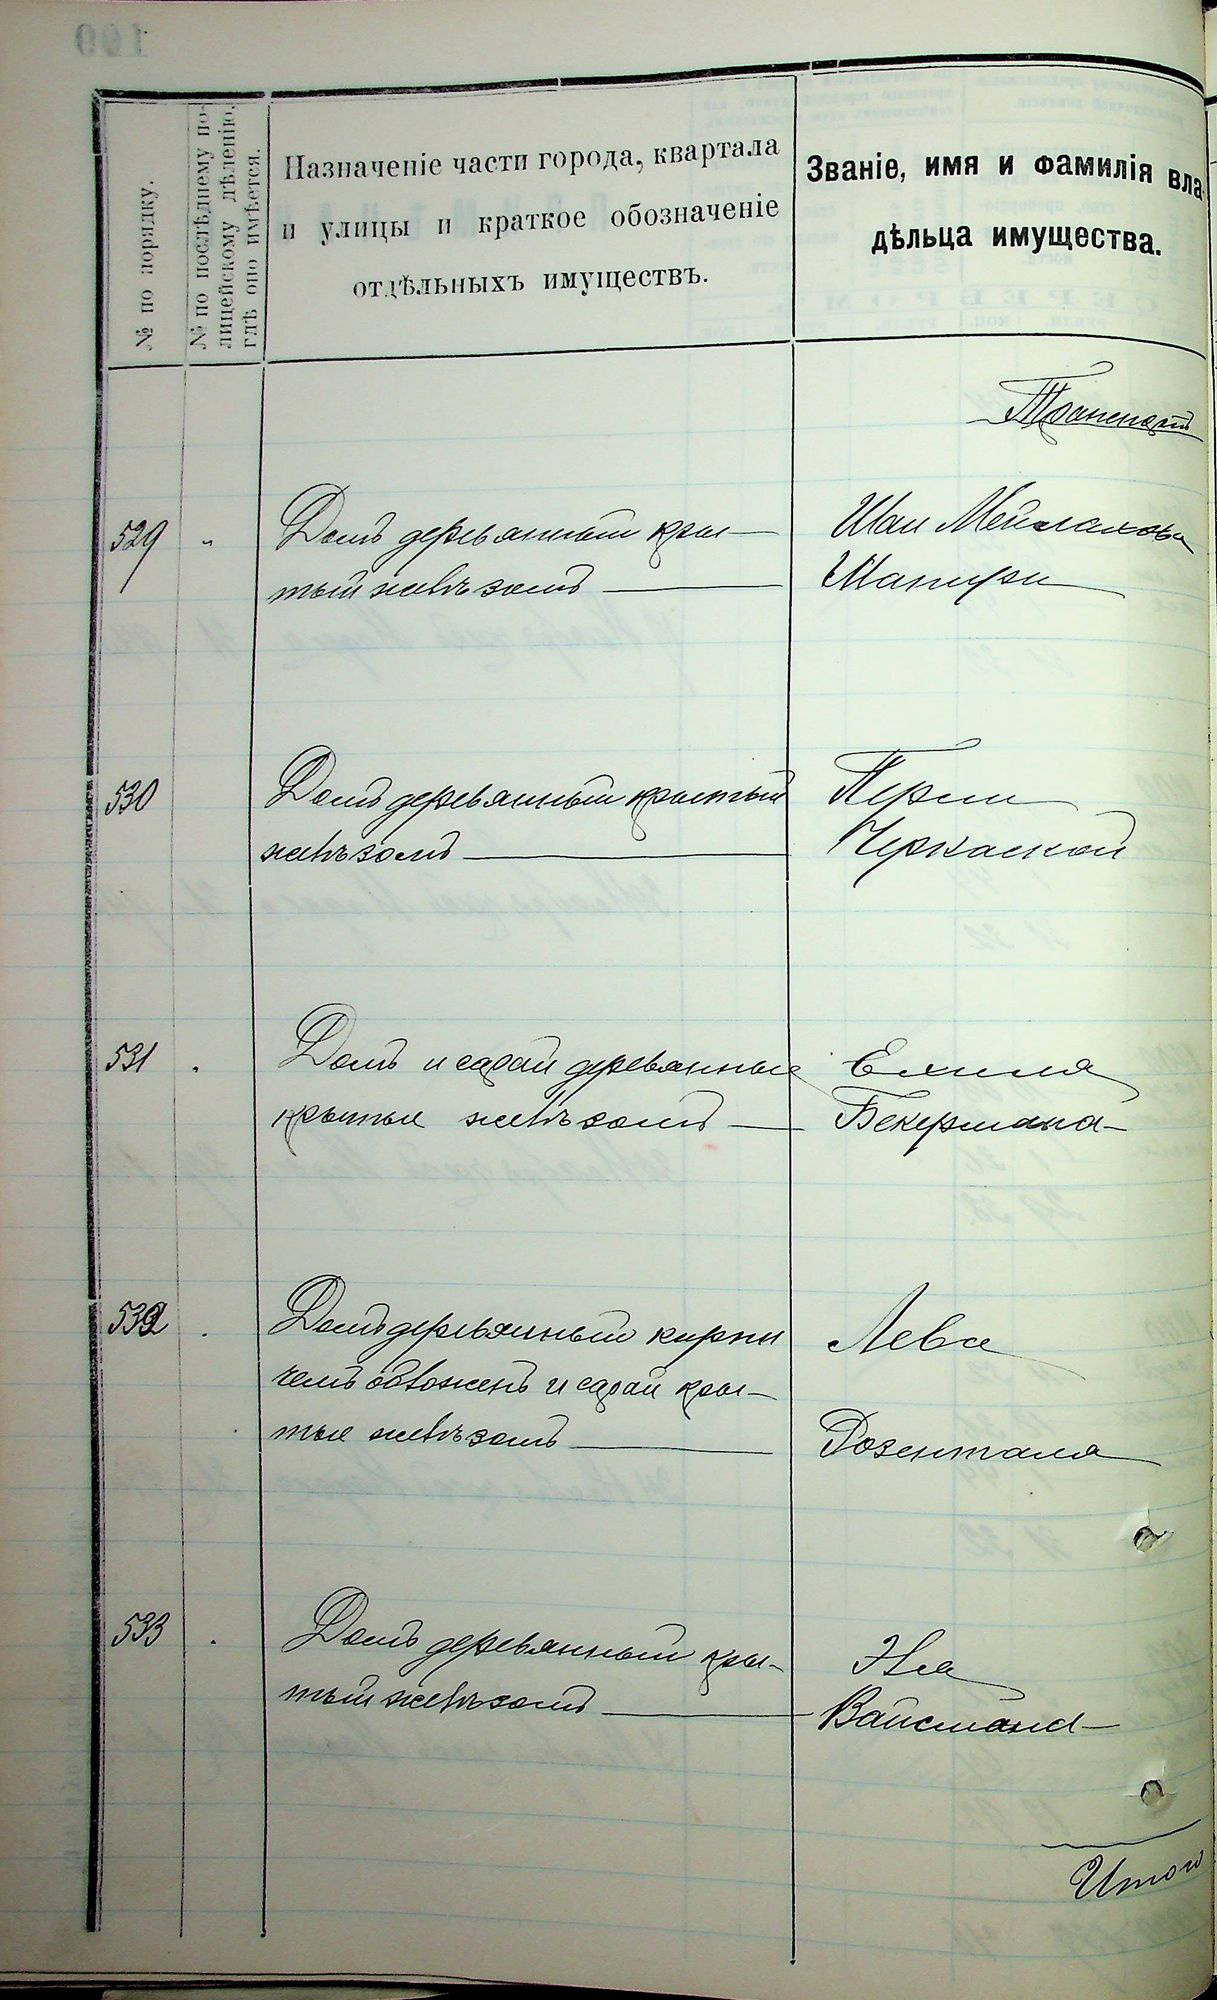 № по порядку.
№ по послѣднему по-
лицейскому дѣленію,
гдѣ оно имѣется.
Назначеніе части города, квартала
и улицы и краткое обозначеніе
отдѣльныхъ имуществъ.
Званіе, имя и фамилія вла-
дѣльца имущества.
Транспортъ
529 „ Домъ деревянный кры-
тый желѣзомъ
Шаи Мейлахова
Шапиры
530 Домъ деревянный крытый
желѣзомъ
Перли
Черкаской
531 Домъ и сарай деревянные
крытые желѣзомъ
Ехиля
Бекермана
532 Домъ деревянный кирпи
чемъ обложенъ и сарай кры-
тые желѣзомъ
Лева
Розенталя
533 Домъ деревянный кры-
тый желѣзомъ
Вайсмана
Итого